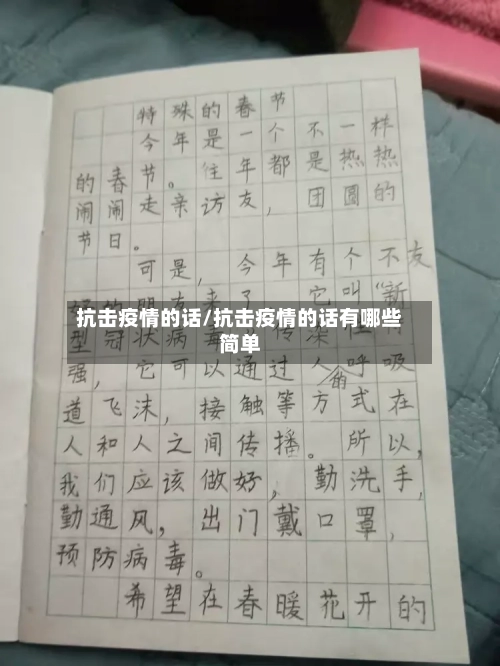 特殊的春节
今年是一个不一样
的春节。往年都是热热
闹闹走亲访友，团圆的
节日。
可是，今年有个不友
好的朋友来了，它叫“新
抗击疫情的话/抗击疫情的话有哪些
简单
型冠状病毒
强，它可以通过人的呼吸
道飞沫，接触等方式在
人和人之间传播。所以，
我们应该做好，勤洗手，
勤通风，出门戴口罩，
预防病毒。
希望在春暖花开的